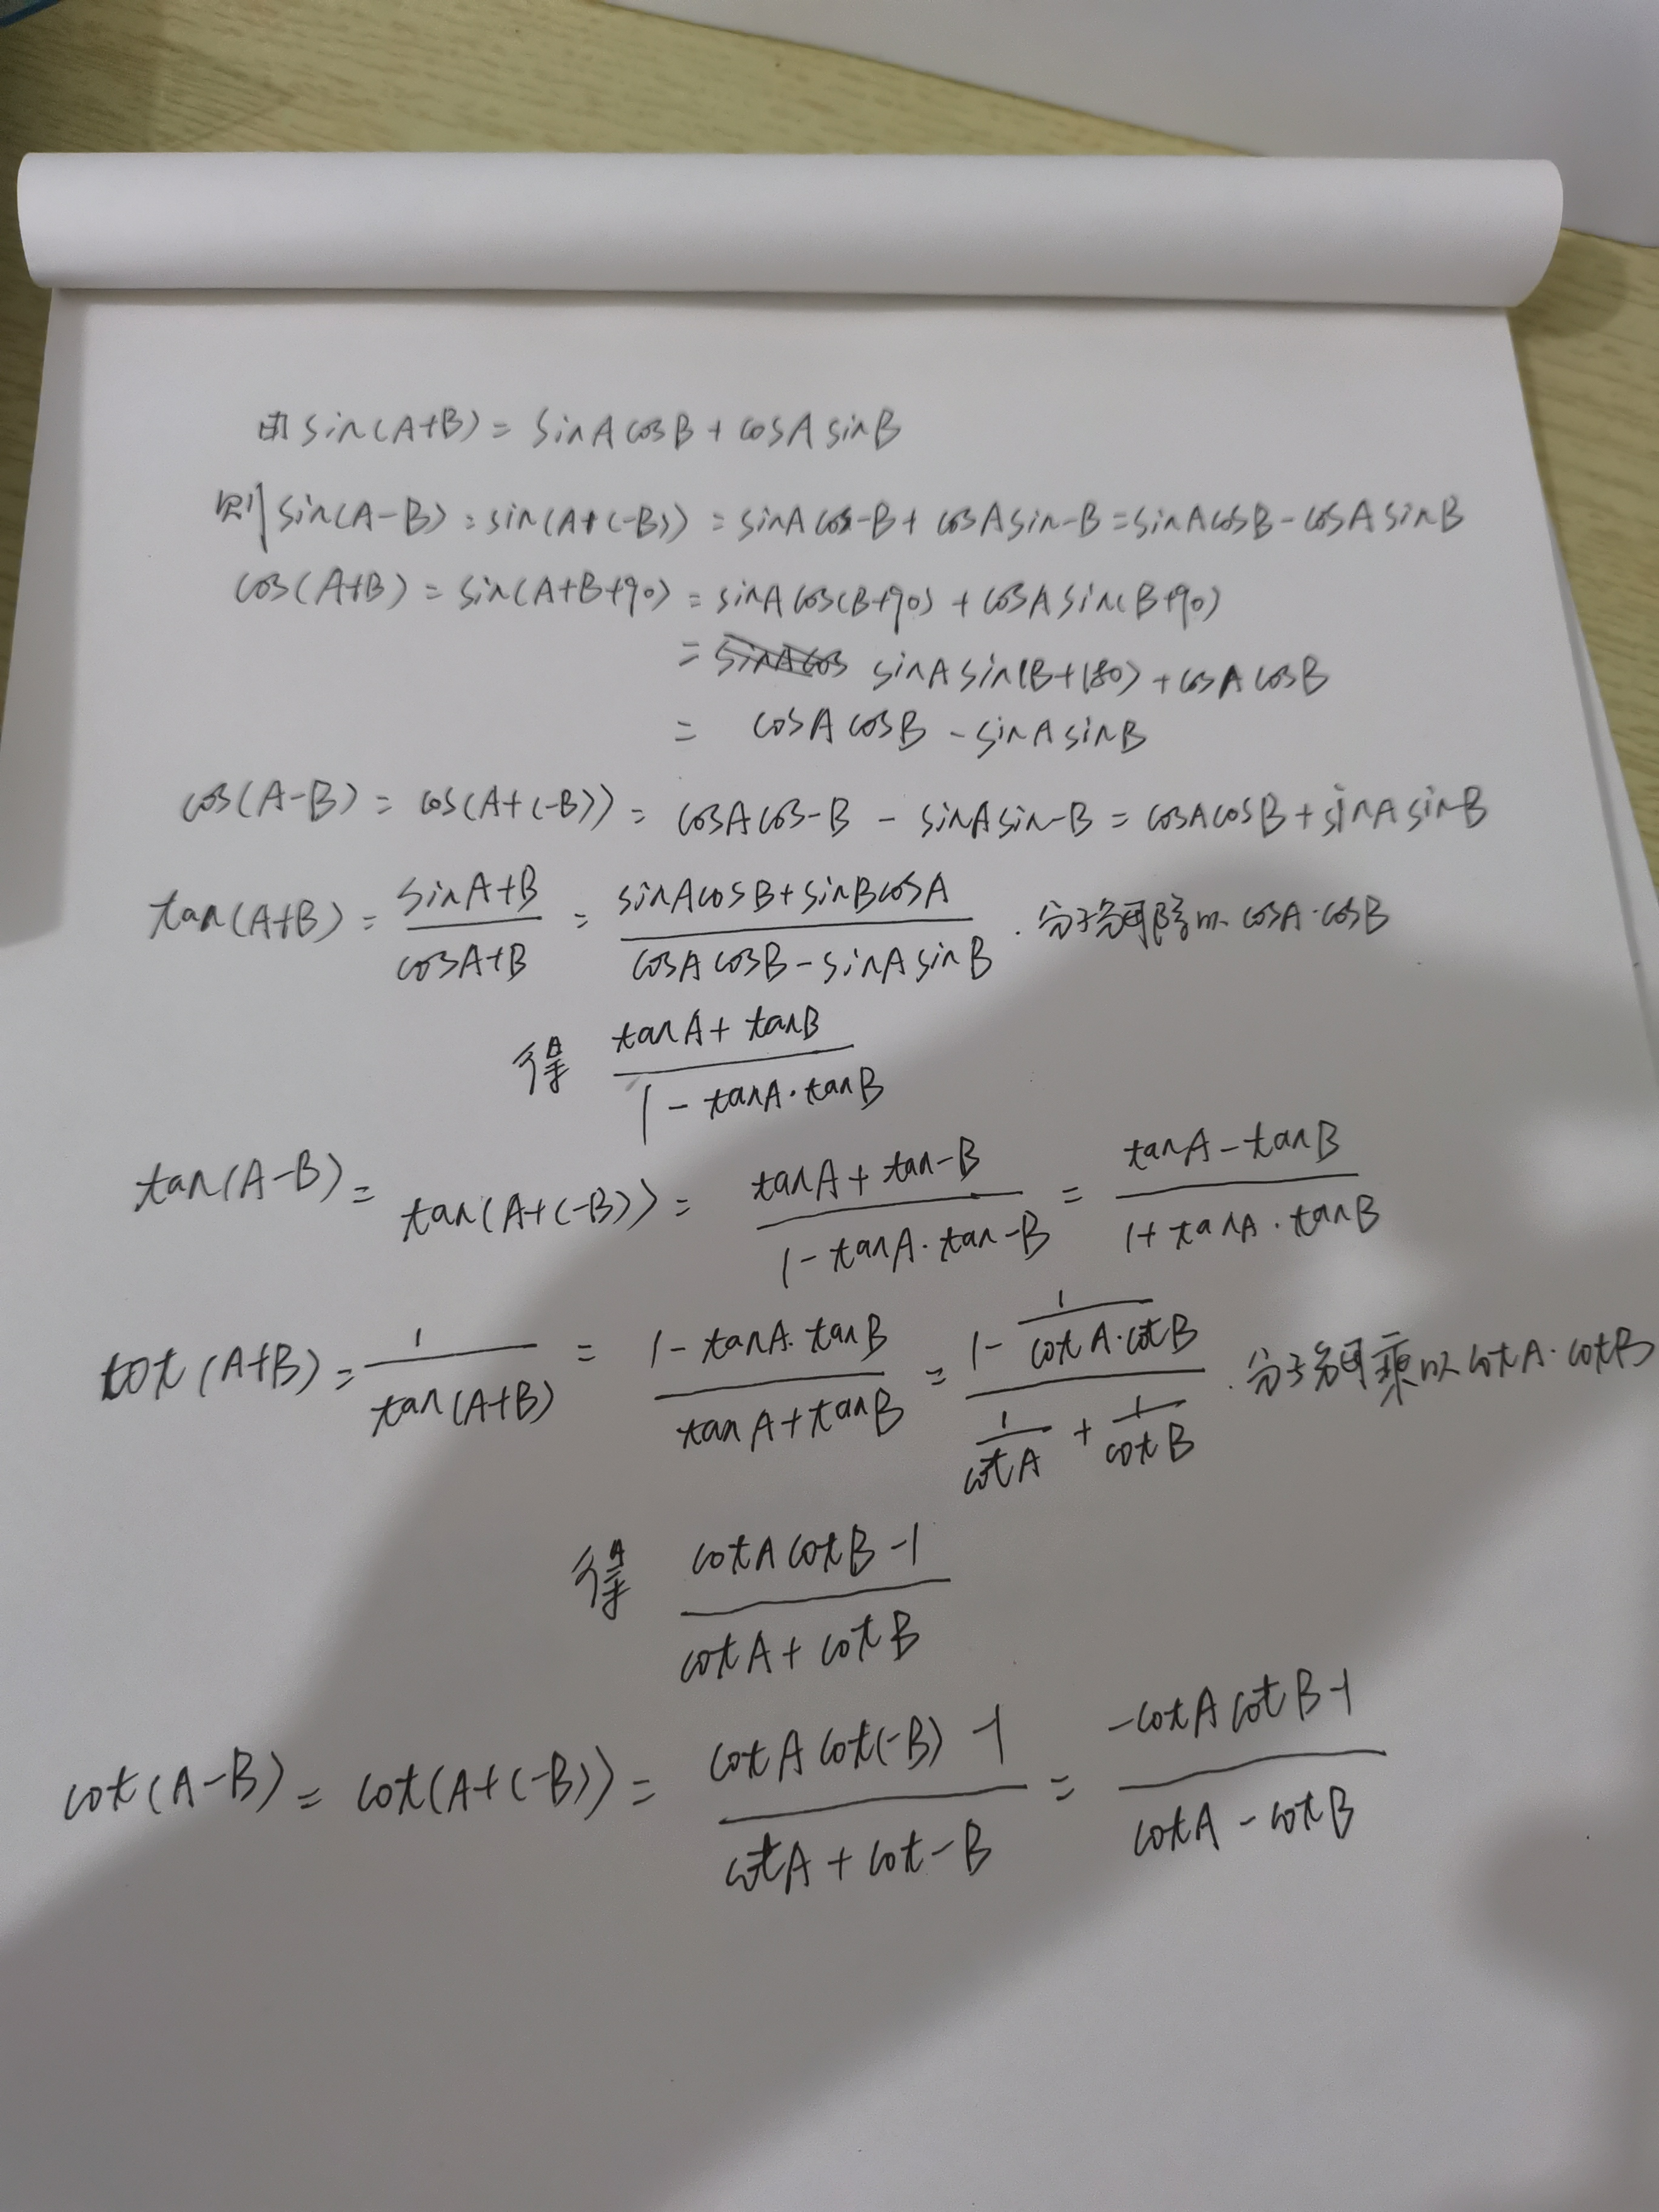 由sin(A+B) = sinAcosB + cosAsinB
则sin(A-B) = sin(A+(-B)) = sinAcos-B + cosAsin-B = sinAcosB - cosAsinB
cos(A+B) = sin(A+B+90) = sinAcos(B+90) + cosAsin(B+90)
= sinAcos sinAsin(B+180) + cosAcosB
= cosAcosB - sinAsinB
cos(A-B) = cos(A+(-B)) = cosAcos-B - sinAsin-B = cosAcosB + sinAsinB
tan(A+B) = \frac{sinA+B}{cosA+B} = \frac{sinAcosB+sinBcosA}{cosAcosB-sinAsinB} . 分子分母除以 cosA·cosB
得 \frac{tanA+tanB}{1-tanA·tanB}
tan(A-B) = tan(A+(-B)) = \frac{tanA+tan-B}{1-tanA·tan-B} = \frac{tanA-tanB}{1+tanA·tanB}
cot(A+B) = \frac{1}{tan(A+B)} = \frac{1-tanA·tanB}{tanA+tanB} = \frac{1-\frac{1}{cotA·cotB}}{\frac{1}{cotA}+\frac{1}{cotB}} . 分子分母乘以 cotA·cotB
得 \frac{cotAcotB-1}{cotA+cotB}
cot(A-B) = cot(A+(-B)) = \frac{cotAcot(-B)-1}{cotA+cot-B} = \frac{-cotAcotB-1}{cotA-cotB}